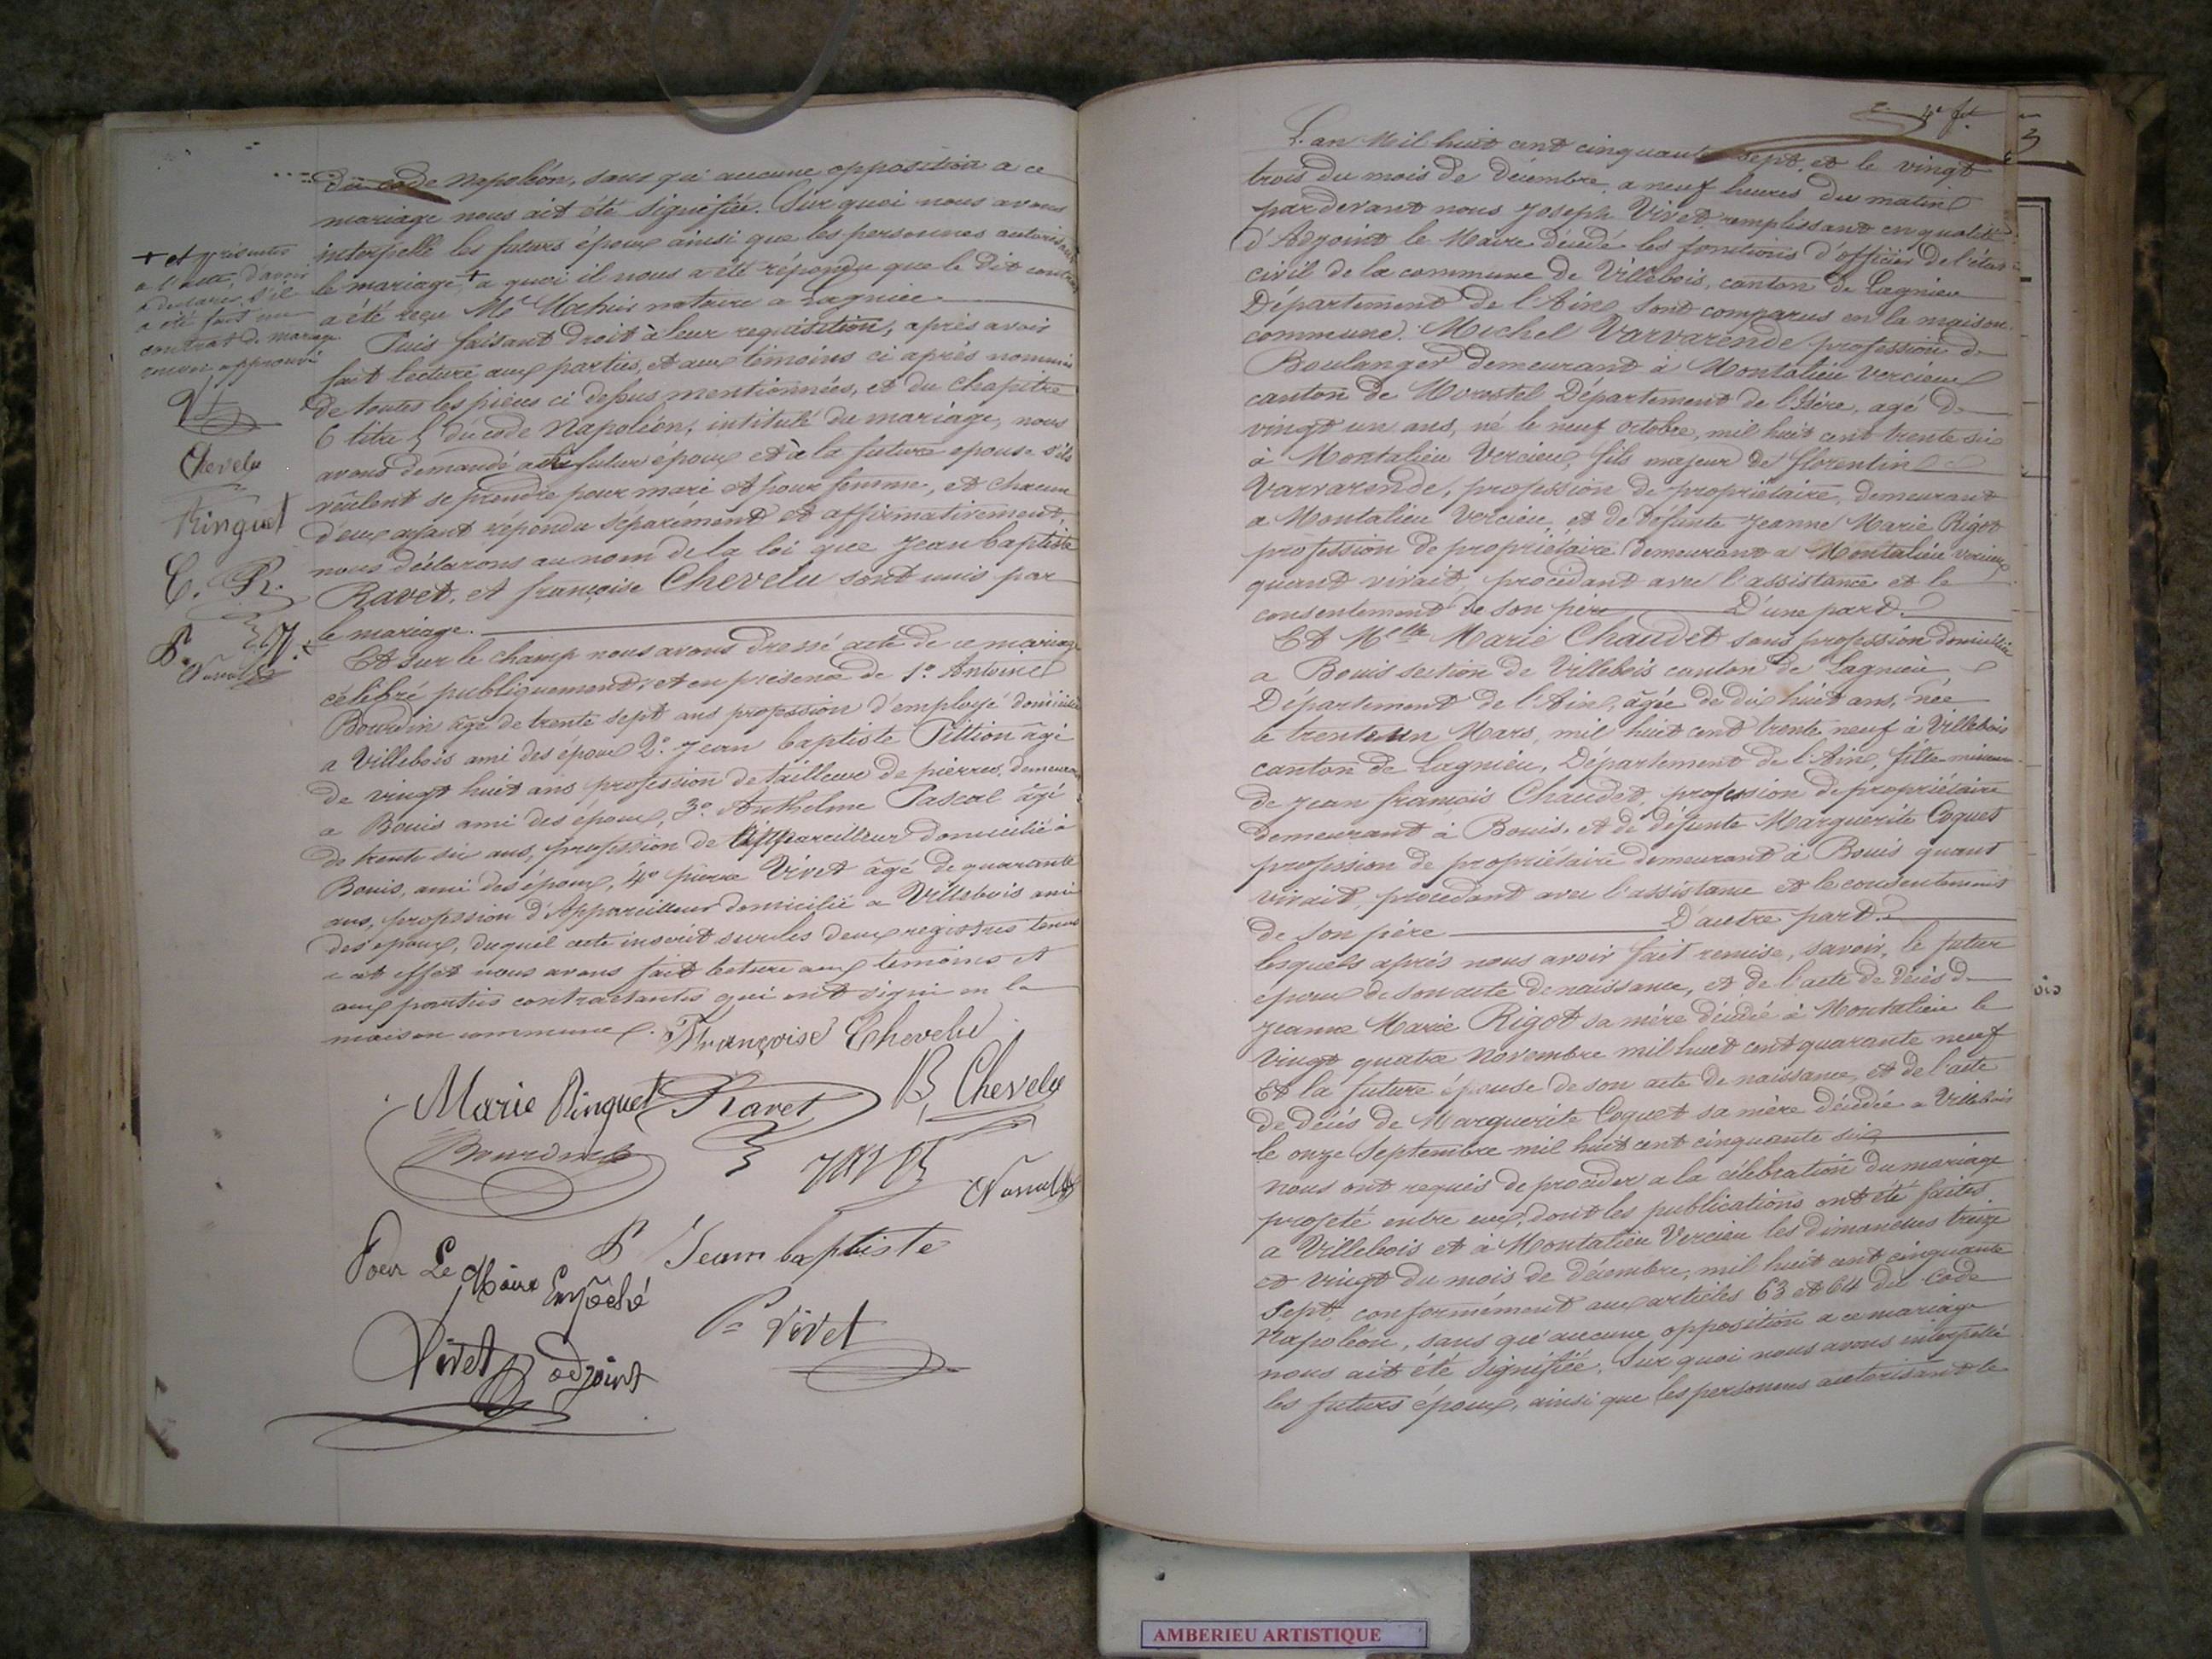 du code Napoléon, sans qu'aucune opposition a ce
mariage nous ait été signifiée. Sur quoi nous avons
interpellé les futurs époux ainsi que les personnes autorisant
le mariage + a quoi il nous a été répondu que le dit contrat
a été reçu Me notaire a Lagnieu
Puis faisant droit à leur requisition, après avoir
fait lecture aux parties, et aux témoins ci après nommés
de toutes les pièces ci dessus mentionnées, et du Chapitre
6 titre 5 du code Napoléon, intitulé du mariage, nous
avons demandé au futur époux et à la future epouse s'ils
veulent se prendre pour mari et pour femme, et chacun
d'eux ayant répondu séparément et affirmativement,
nous déclarons au nom de la loi que Jean baptiste
Ravet, et françoise Chevelu sont unis par
le mariage.
Et sur le champ nous avons dressé acte de ce mariage
célébré publiquement, et en présence de 1o. Antoine
Bourdin âgé de trente sept ans profession d'employé domicilié
a Villebois ami des époux 2o. Jean baptiste Tittion âgé
de vingt huit ans profession de tailleur de pierres, demeurant
a Bouis ami des époux, 3o. Anthelme Pascal âgé
de trente six ans, profession de appareilleur domicilié à
Bouis, ami des époux, 4o pierre Vivet âgé de quarante
ans, profession d'Appareilleur domicilié a Villebois ami
des epoux, duquel acte inscrit sur les deux registres tenus
a cet effet nous avons fait lecture aux temoins et
aux parties contractantes qui ont signé en la
maison commune.
+ et présentes
a l'acte, d'avoir
a declarer s'il
a été fait un
contrat de mariage
renvoi approuvé
Chevelu
Ringuet
C. R.
Françoise Chevelu
Marie Ringuet Ravet B, Chevelu
Bourdin
Jean baptiste
Pour Le Maire Empêché
Vivet adjoint
Pre Vivet
4e fet
3
L'an Mil huit cent cinquante sept, et le vingt
trois du mois de Décembre, a neuf heures du matin
pardevant nous Joseph Vivet remplissant en qualité
d'Adjoint le Maire décédé les fonctions d'officier de l'état
civil de la commune de Villebois, canton de Lagnieu
Département de l'Ain, sont comparus en la maison
commune. Michel Varvarende profession de
Boulanger demeurant à Montalieu Vercieu
canton de Morestel Département de l'Isère, agé de
vingt un ans, né le neuf octobre, mil huit cent trente six
à Montalieu Vercieu, fils majeur de florentin
Varvarende, profession de propriétaire, demeurant
a Montalieu Vercieu, et de défunte Jeanne Marie Rigot
profession de propriétaire demeurant a Montalieu Vercieu
quant vivait, procédant avec l'assistance et le
consentement de son père D'une part.
Et Melle Marie Chaudet sans profession domiciliée
a Bouis section de Villebois canton de Lagnieu
Département de l'Ain, âgée de dix huit ans, née
le trente un Mars, mil huit cent trente neuf à Villebois
canton de Lagnieu, Département de l'Ain, fille mineure
de Jean françois Chaudet, profession de propriétaire
demeurant à Bouis, et de défunte Marguerite Coquet
profession de propriétaire demeurant à Bouis quant
vivait, procédant avec l'assistance et le consentement
de son père D'autre part.
lesquels après nous avoir fait remise, savoir, le futur
époux de son acte de naissance, et de l'acte de décès de
Jeanne Marie Rigot sa mère décédée à Montalieu le
vingt quatre Novembre mil huit cent quarante neuf
Et la future épouse de son acte de naissance, et de l'acte
de décès de Marguerite Coquet sa mère décédée a Villebois
le onze Septembre mil huit cent cinquante six
nous ont requis de procéder a la célébration du mariage
projeté entre eux, dont les publications ont été faites
a Villebois et à Montalieu Vercieu les dimanches treize
et vingt du mois de décembre, mil huit cent cinquante
Sept, conformément aux articles 63 et 64 du Code
Napoléon, sans qu'aucune opposition a ce mariage
nous ait été signifiée. Sur quoi nous avons interpellé
les futurs époux, ainsi que les personnes autorisant le
ois
AMBERIEU ARTISTIQUE